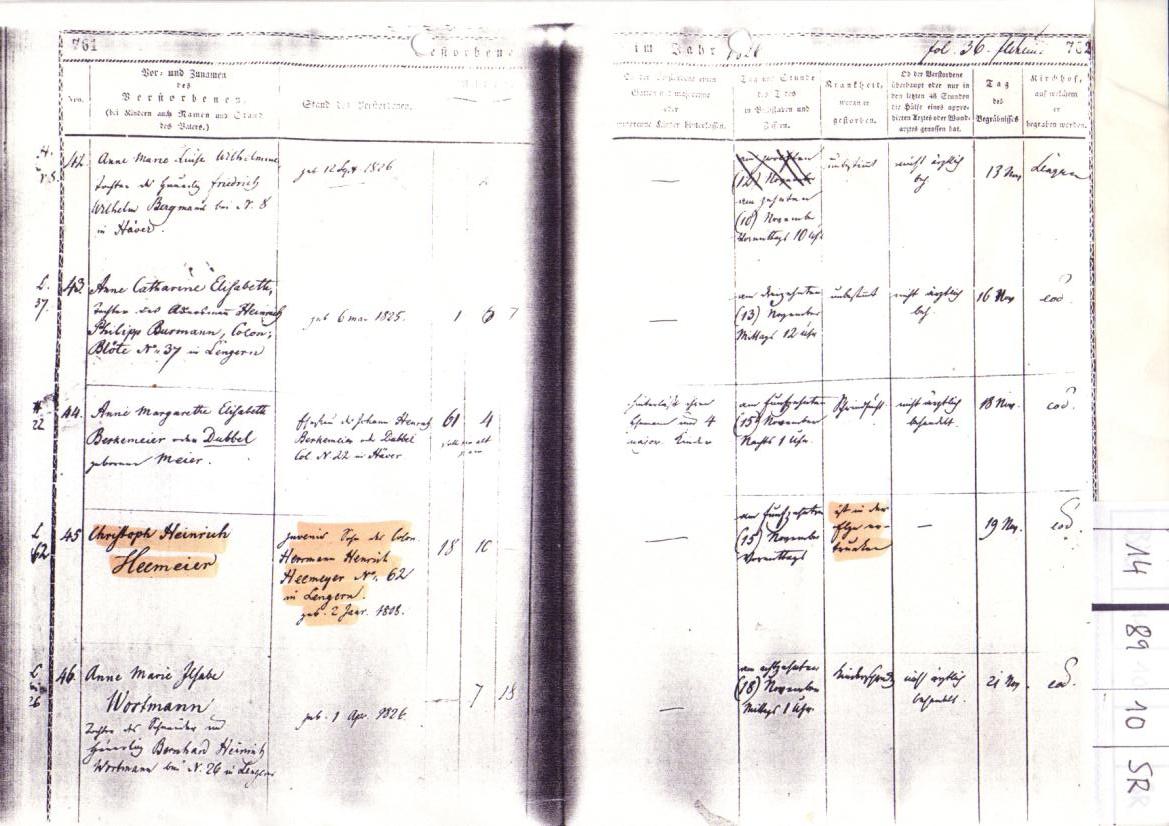 761
Gestorbene
im Jahr
fol. 36.
762
Nro.
Vor- und Zunamen
des
Verstorbenen.
(bei Kindern auch Namen und Stand
des Vaters.)
Stand des Verstorbenen.
Ob der Verstorbene einen
Gatten und majorenne
oder
minorenne Kinder hinterlassen.
Tag und Stunde
des Todes
in Buchstaben und
Ziffern.
Krankheit,
woran er
gestorben.
Ob der Verstorbene
überhaupt oder nur in
den letzten 48 Stunden
die Hülfe eines appro-
birten Arztes oder Wund-
arztes genossen hat.
Tag
des
Begräbnisses
Kirchhof,
auf welchem
er
begraben worden.
42.
Anne Marie Luise Wilhelmine
Tochter des Heuerling Friedrich
Wilhelm Bergmann bei N. 8
in Häver.
geb 12 Sept 1826
(12) November
am zehnten
(10) Novembr
Vormittags 10 Uhr
unbestimt
nicht ärztlich
beh
13 Nov
Lengern
L.
37.
43.
Anne Catharine Elisabeth,
Tochter des Heinrich
Philipp Burmann, Colon,
Blöte No. 37 in Lengern
geb 6 mai 1825.
1 6 7
am dreizehnten
(13) November
Mittags 12 Uhr.
unbestimt
nicht ärztlich
beh.
16 Nov
eod.
22
44.
Anne Margarethe Elisabeth
Berkemeier oder Dubbel
geborene Meier.
Ehefrau des Johann Henrich
Berkemeier od. Dubbel
Col. N 22 in Häver
61 4
hinterläßt ihren
Ehemann und 4
major. Kinder
am funfzehnten
(15) November
Nachts 1 Uhr.
nicht ärztlich
behandelt.
18 Nov.
eod.
L
62
45
Christoph Heinrich
Heemeier
juvenis Sohn des Colon
Herrmann Henrich
Heemeyer No. 62
in Lengern.
geb. 2 Janr. 1808.
18 10
am funfzehnten
(15) Novembr
Vormittags
ist in der
Else er-
trunken
19 Nov.
eod.
L
26
46.
Anne Marie Ilsabe
Wortmann
Tochter des Schneider und
Heuerling Bernhard Heinrich
Wortmann bei N. 26 in Lengern
geb. 1 Apr. 1826.
7 18
am achtzehnten
(18) November
Mittags 1 Uhr.
nicht ärztlich
behandelt.
21 Nov
eod.
14
89
10
SR